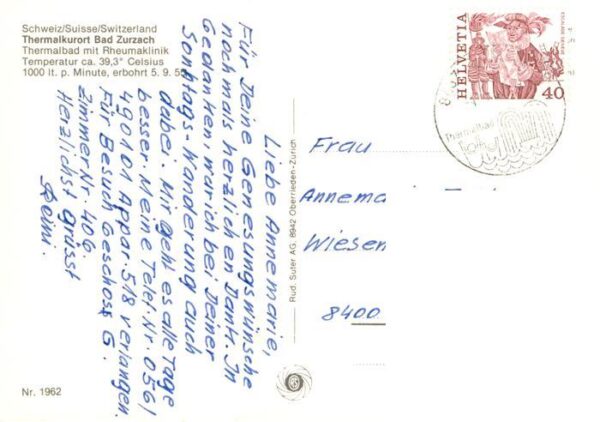 Schweiz/Suisse/Switzerland
Thermalkurort Bad Zurzach
Thermalbad mit Rheumaklinik
Temperatur ca. 39,3° Celsius
1000 lt. p. Minute, erbohrt 5. 9. 55
Liebe Annemarie,
Für Deine Genesungswünsche
nochmals herzlichen Dank. In
Gedanken, war ich bei Deiner
Sonntags-Wanderung auch
dabei. Mir geht es alle Tage
besser. Meine Telef. Nr. 056/
490101 Appar. 518 verlangen.
Für Besuch Geschoss G.
Zimmer Nr. 406.
Herzlichst grüsst
Reini.
Nr. 1962
Rud. Suter AG, 8942 Oberrieden-Zürich
HELVETIA
ESCALADE GENÈVE
40
Thermalbad
Frau
Annema
Wiesen
8400